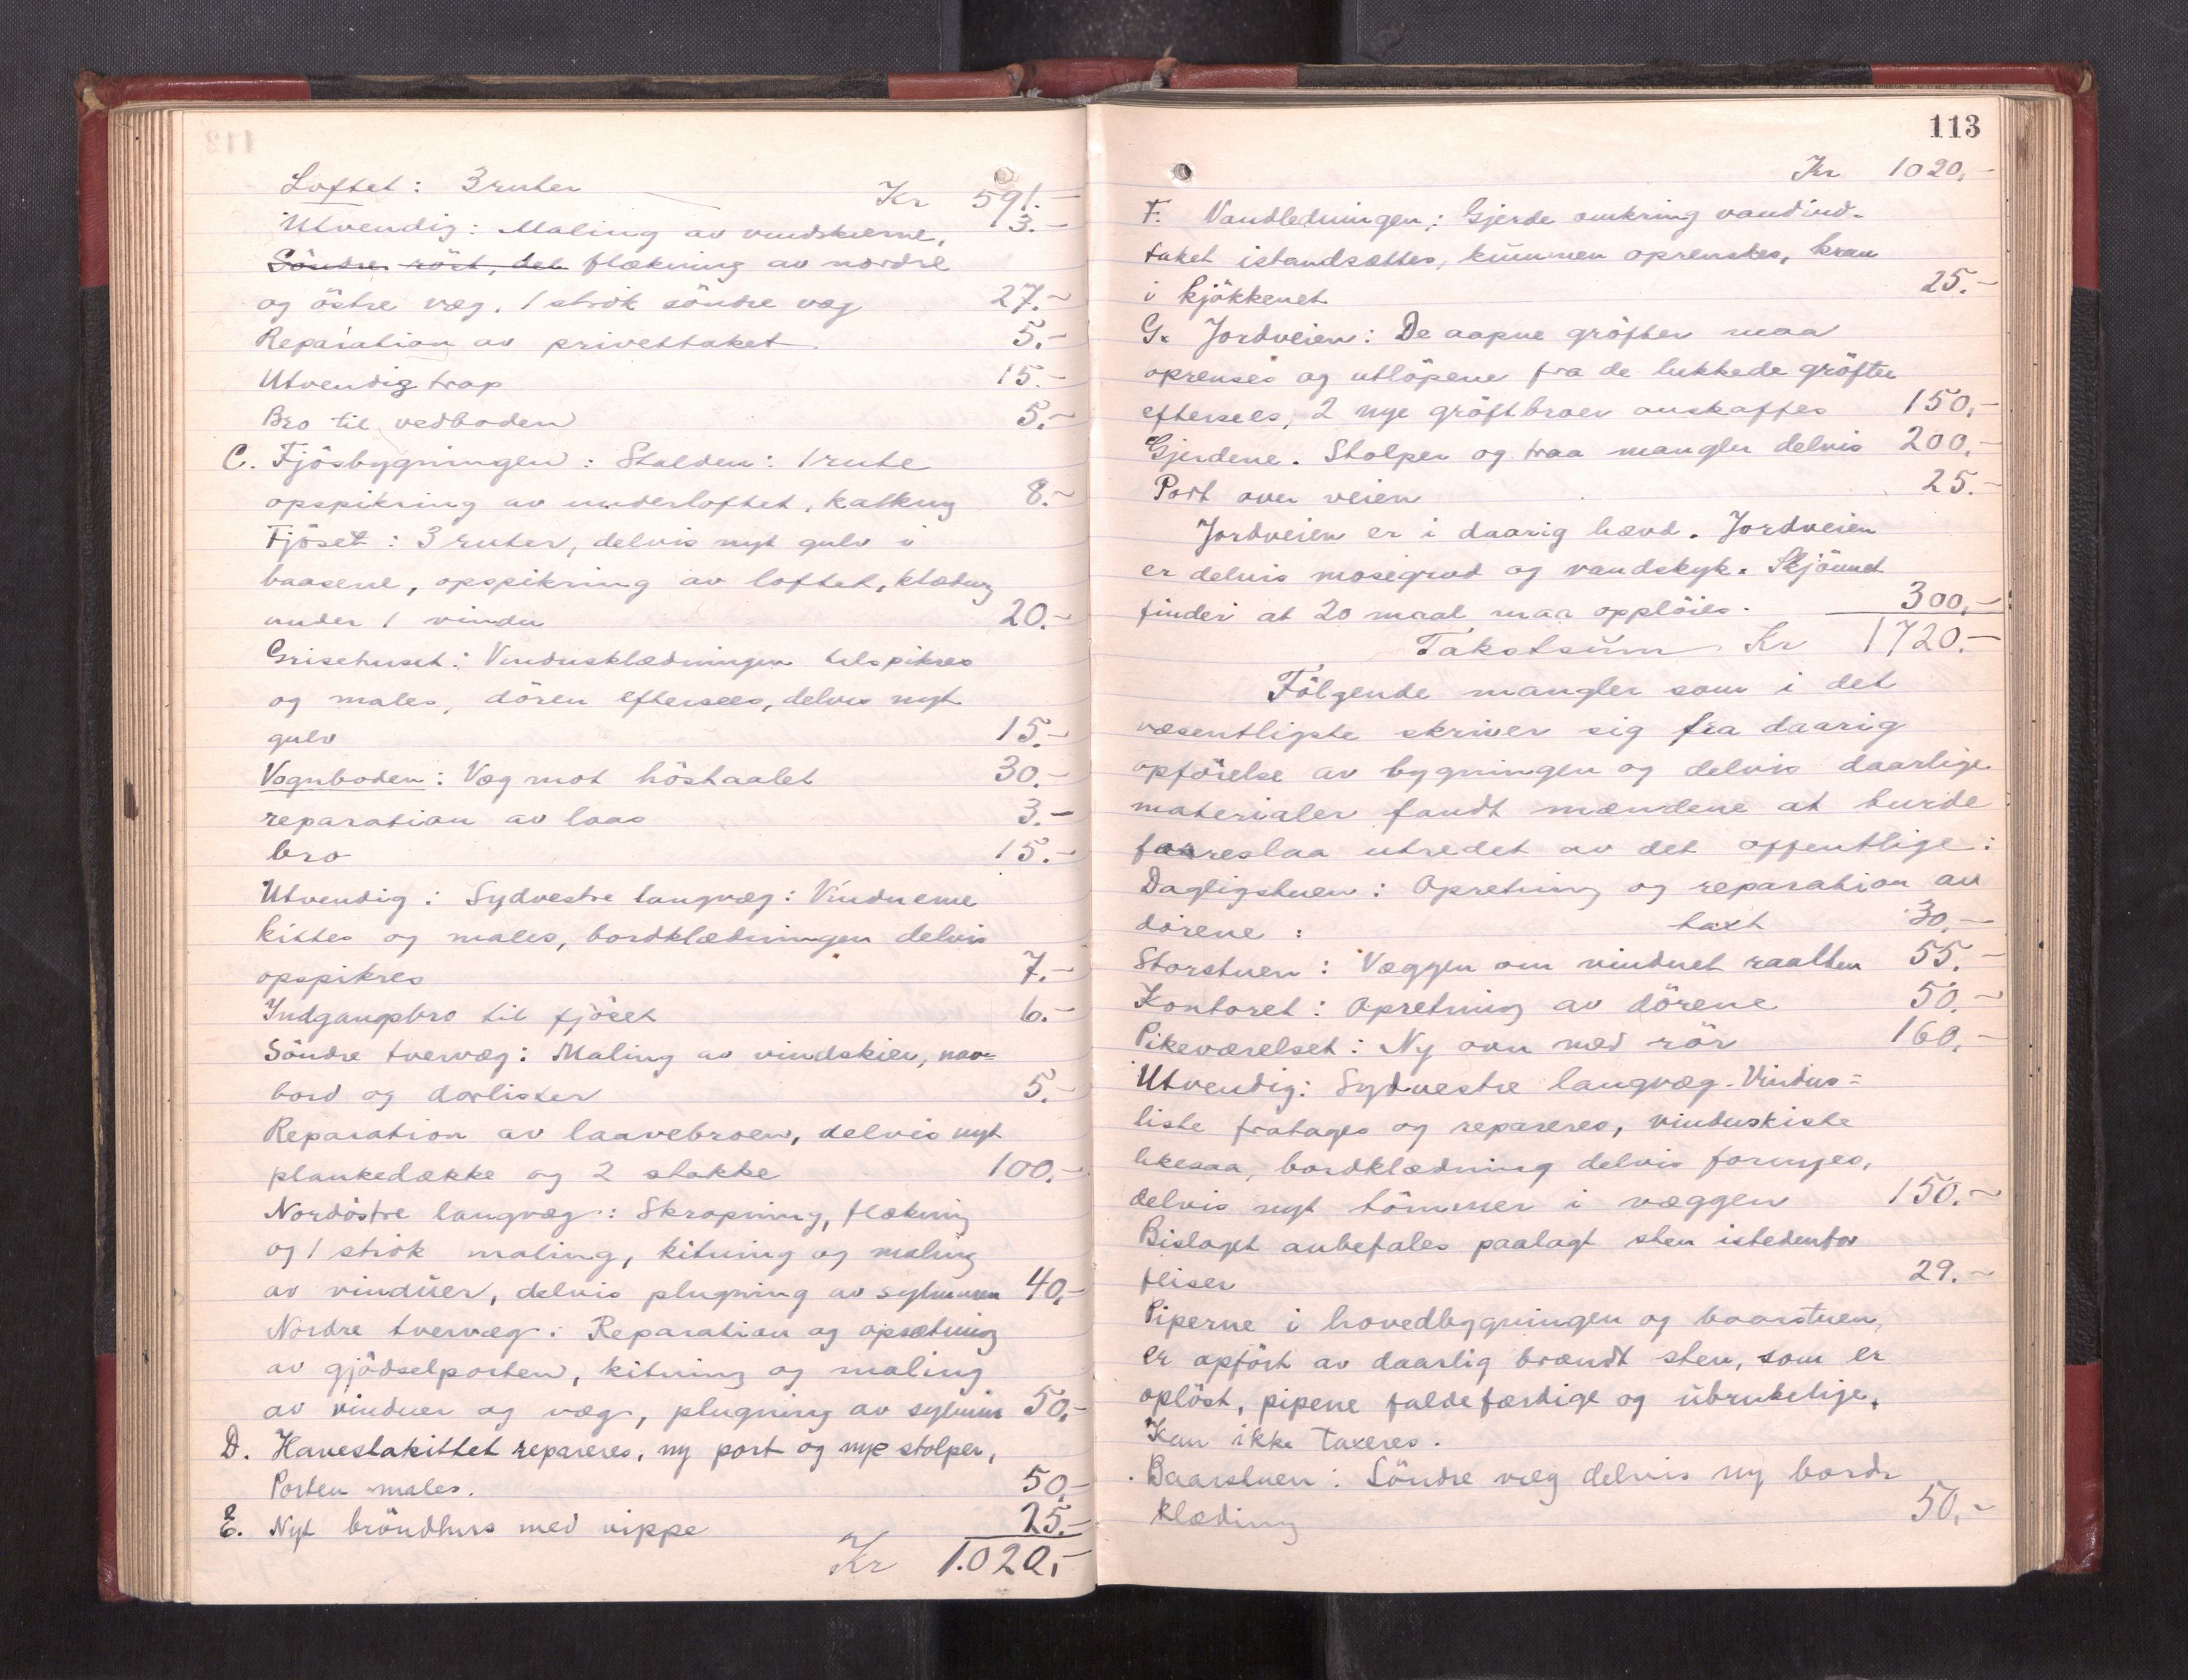 Kr 591.-
Loftet: 3 ruter 3.-
Utvendig: Maling av vindskierne,
Söndre röst, del flækning av nordre
og östre væg, 1 strök söndre væg 27.-
Reparation av privettaket 5.-
Utvendig trap 15.-
Bro til vedboden 5.-
C. Fjösbygningen: Stalden: 1 rute
opspikring av underloftet, kalkning 8.-
Fjöset: 3 ruter, delvis nyt gulv i
baasene, opspikring av loftet, klædning
under 1 vindu 20.-
Grisehuset: Vindusklædningen tilspikres
og males, dören eftersees, delvis nyt
gulv 15.-
Vognboden: Væg mot höstaalet 30.-
reparation av laas 3.-
bro 15.-
Utvendig: Sydvestre langvæg: Vinduerne
kittes og males, bordklædningen delvis
opspikres 7.-
Indgangsbro til fjöset 6.-
Söndre tvervæg: Maling av vindskier, nov=
bord og dørlister 5.-
Reparation av laavebroen, delvis nyt
plankedække og 2 stokke 100.-
Nordöstre langvæg: Skrapning, flækning
og 1 strök maling, kitning og maling
av vinduer, delvis plugning av sylmuren 40,-
Nordre tvervæg: Reparation og opsætning
av gjödselporten, kitning og maling
av vinduer og væg, plugning av sylmur 50,-
D. Havestakittet repareres, ny port og nye stolper,
Porten males. 50,-
E. Nyt bröndhus med vippe 25.-
Kr 1.020,-
113
Kr 1020,-
F. Vandledningen; Gjerde omkring vandind-
taket istandsættes, kummen oprenskes, kran
i kjökkenet 25.-
G. Jordveien: De aapne gröfter maa
oprenses og utlöpene fra de lukkede gröfter
eftersees, 2 nye gröftbroer anskaffes 150,-
Gjerdene. Stolper og traa mangler delvis 200,-
Port over veien 25.-
Jordveien er i daarig hævd. Jordveien
er delvis mosegrod og vandsyk. Skjönnet
finder at 20 maal maa opplöies. 300,-
Takstsum Kr 1720.-
Fölgende mangler som i det
væsentligste skriver sig fra daarig
opförelse av bygningen og delvis daarlige
materialer fandt mændene at burde
foreslaa utredet av det offentlige:
Dagligstuen: Opretning og reparation av
dörene: taxt 30,-
Storstuen: Væggen om vinduet raatten 55,-
Kontoret: Opretning av dörene 50.-
Pikeværelset: Ny ovn med rör 160,-
Utvendig: Sydvestre langvæg. Vindus=
liste fratages og repareres, vinduskiste
likesaa, bordklædning delvis fornyes,
delvis nyt tömmer i væggen 150.-
Bislaget anbefales paalagt sten istedenfor
fliser 29.-
Piperne i hovedbygningen og baarstuen,
er opfört av daarlig brændt sten, som er
oplöst, pipene faldefærdige og ubrukelige.
Kan ikke taxeres.
Baarstuen: Söndre væg delvis ny bord-
klædning 50,-